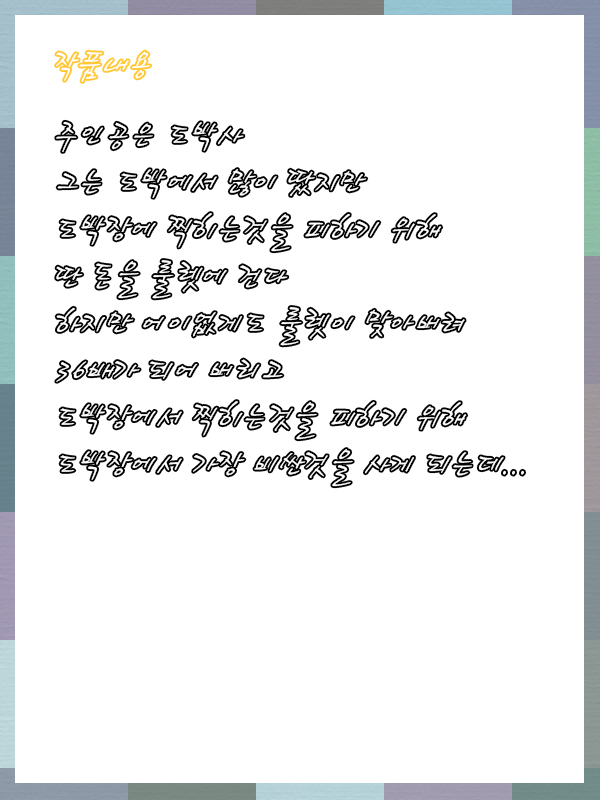 작품내용
주인공은 도박사
그는 도박에서 많이 땄지만
도박장에 찍히는것을 피하기 위해
딴 돈을 룰렛에 건다
하지만 어이없게도 룰렛이 맞아버려
36배가 되어 버리고
도박장에서 찍히는것을 피하기 위해
도박장에서 가장 비싼것을 사게 되는데...